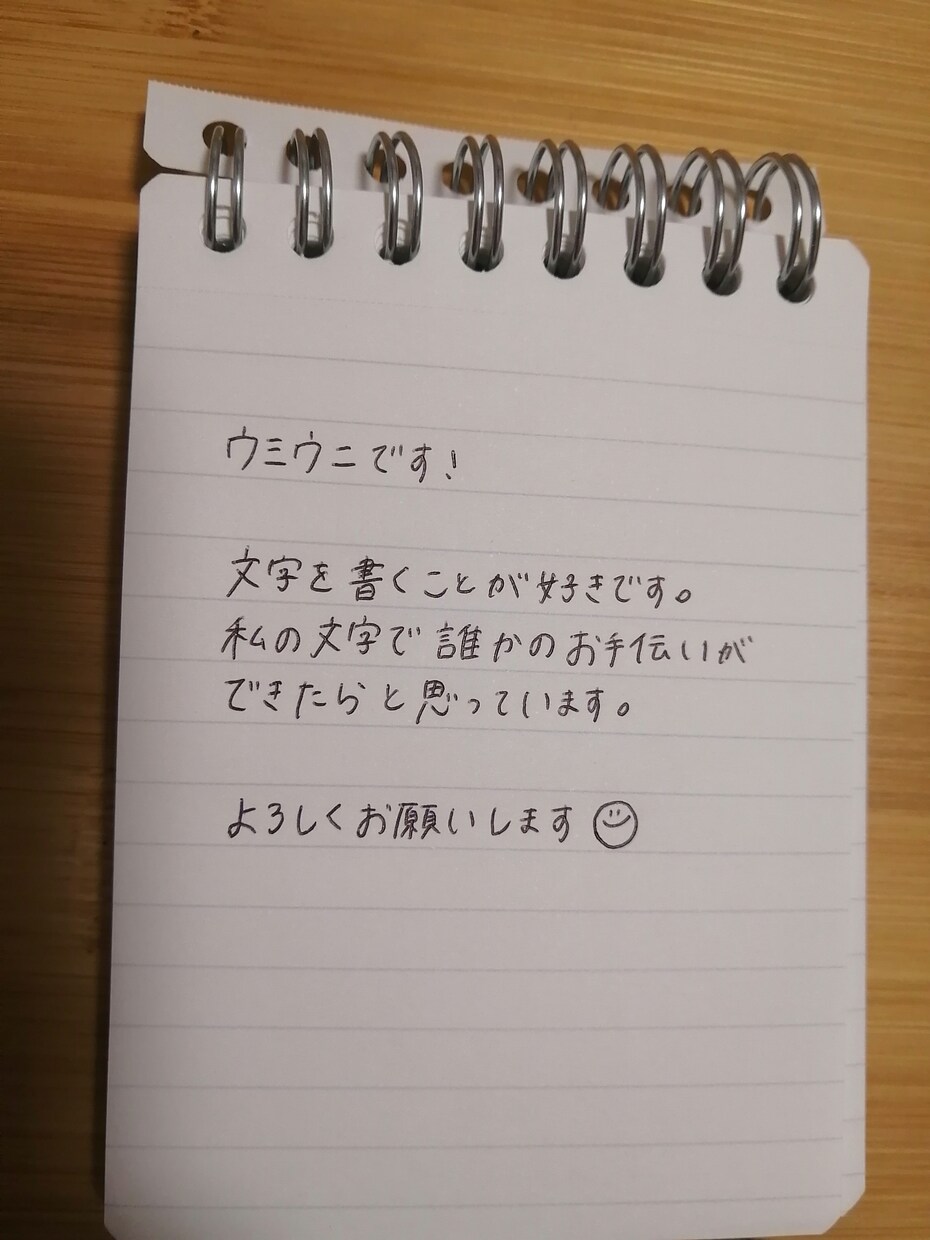 ウミウニです!
文字を書くことが好きです。
私の文字で誰かのお手伝いが
できたらと思っています。
よろしくお願いします☺